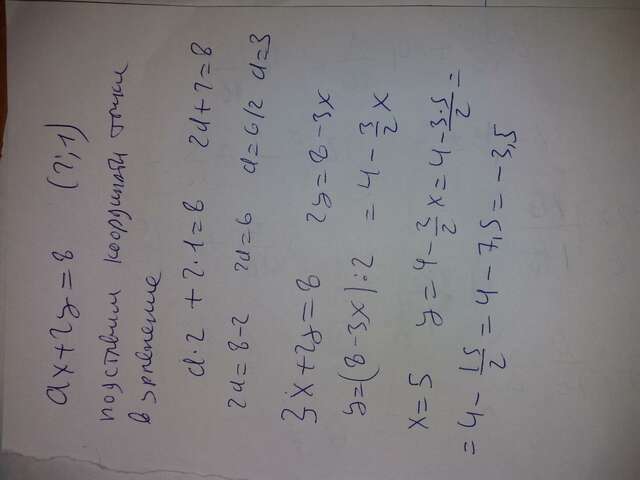 ax+2y=8 (2;1)
подставим координаты точки
в уравнение
a·2+2·1=8 2a+2=8
2a=8-2 2a=6 a=6/2 a=3
3x+2y=8 2y=8-3x
y=(8-3x):2 =4-\frac{3}{2}x
x=5 y=4-\frac{3}{2}x=4-\frac{3·5}{2}=
=4-\frac{15}{2}=4-7,5=-3,5